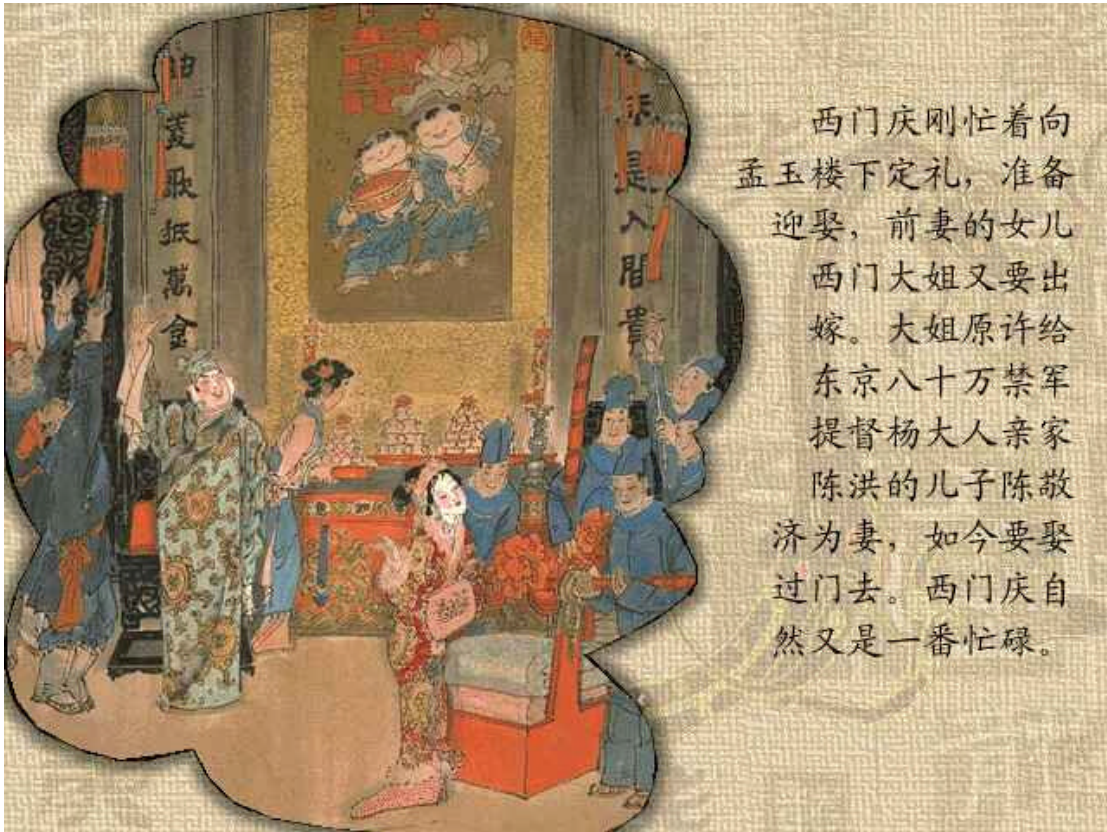 菱歌抵萬金
是人間貴
西门庆刚忙着向
孟玉楼下定礼，准备
迎娶，前妻的女儿
西门大姐又要出
嫁。大姐原许给
东京八十万禁军
提督杨大人亲家
陈洪的儿子陈敬
济为妻，如今要娶
过门去。西门庆自
然又是一番忙碌。